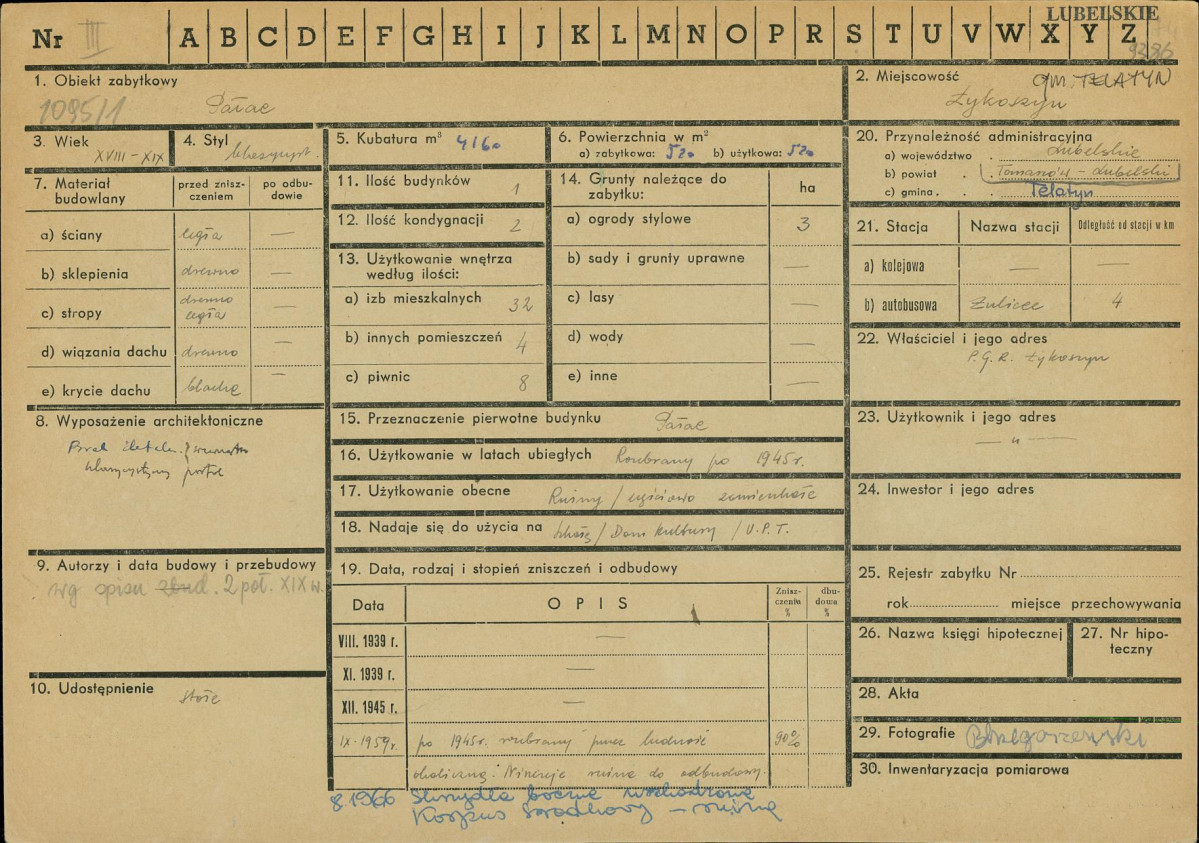 LUBELSKIE
Nr III A B C D E F G H I J K L M N O P R S T U V W X Y Z
9286
1. Obiekt zabytkowy
1095/1 Pałac
2. Miejscowość gm. TELATYN
Żykoszyn
3. Wiek
XVIII – XIX
4. Styl
5. Kubatura m³ 4160
6. Powierzchnia w m²
a) zabytkowa: 520 b) użytkowa: 520
20. Przynależność administracyjna
a) województwo Lubelskie
b) powiat Tomaszów - Lubelski
c) gmina Telatyn
7. Materiał budowlany
przed zniszczeniem
po odbudowie
a) ściany cegła —
b) sklepienia drewno —
c) stropy drewno cegła —
d) wiązania dachu drewno —
e) krycie dachu blacha —
11. Ilość budynków 1
12. Ilość kondygnacji 2
13. Użytkowanie wnętrza według ilości:
a) izb mieszkalnych 32
b) innych pomieszczeń 4
c) piwnic 8
14. Grunty należące do zabytku: ha
a) ogrody stylowe 3
b) sady i grunty uprawne —
c) lasy —
d) wody —
e) inne —
21. Stacja Nazwa stacji Odległość od stacji w km
a) kolejowa — —
b) autobusowa Żulice 4
22. Właściciel i jego adres
P.G.R. Żykoszyn
8. Wyposażenie architektoniczne
Brak
klasycystyczny portal
15. Przeznaczenie pierwotne budynku Pałac
16. Użytkowanie w latach ubiegłych Rozebrany po 1945 r.
17. Użytkowanie obecne Ruiny / częściowo zamieszkałe
18. Nadaje się do użycia na szkołę / Dom kultury / U.P.T.
23. Użytkownik i jego adres
— " —
24. Inwestor i jego adres
9. Autorzy i data budowy i przebudowy
wg opisu zbud. 2 poł. XIX w.
19. Data, rodzaj i stopień zniszczeń i odbudowy
Data OPIS Zniszczenia % dbudowa %
VIII. 1939 r. —
XI. 1939 r. —
XII. 1945 r. —
IX. 1959 r. po 1945 r. rozebrany przez ludność 90%
okoliczną. Niniejsze ruina do odbudowy.
8 1966 Skrzydła boczne
Korpus środkowy – ruina
25. Rejestr zabytku Nr
rok miejsce przechowywania
26. Nazwa księgi hipotecznej
27. Nr hipoteczny
10. Udostępnienie
stałe
28. Akta
29. Fotografie
30. Inwentaryzacja pomiarowa